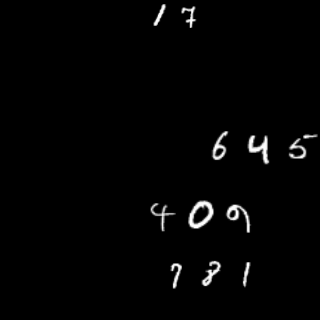 17
645
409
781